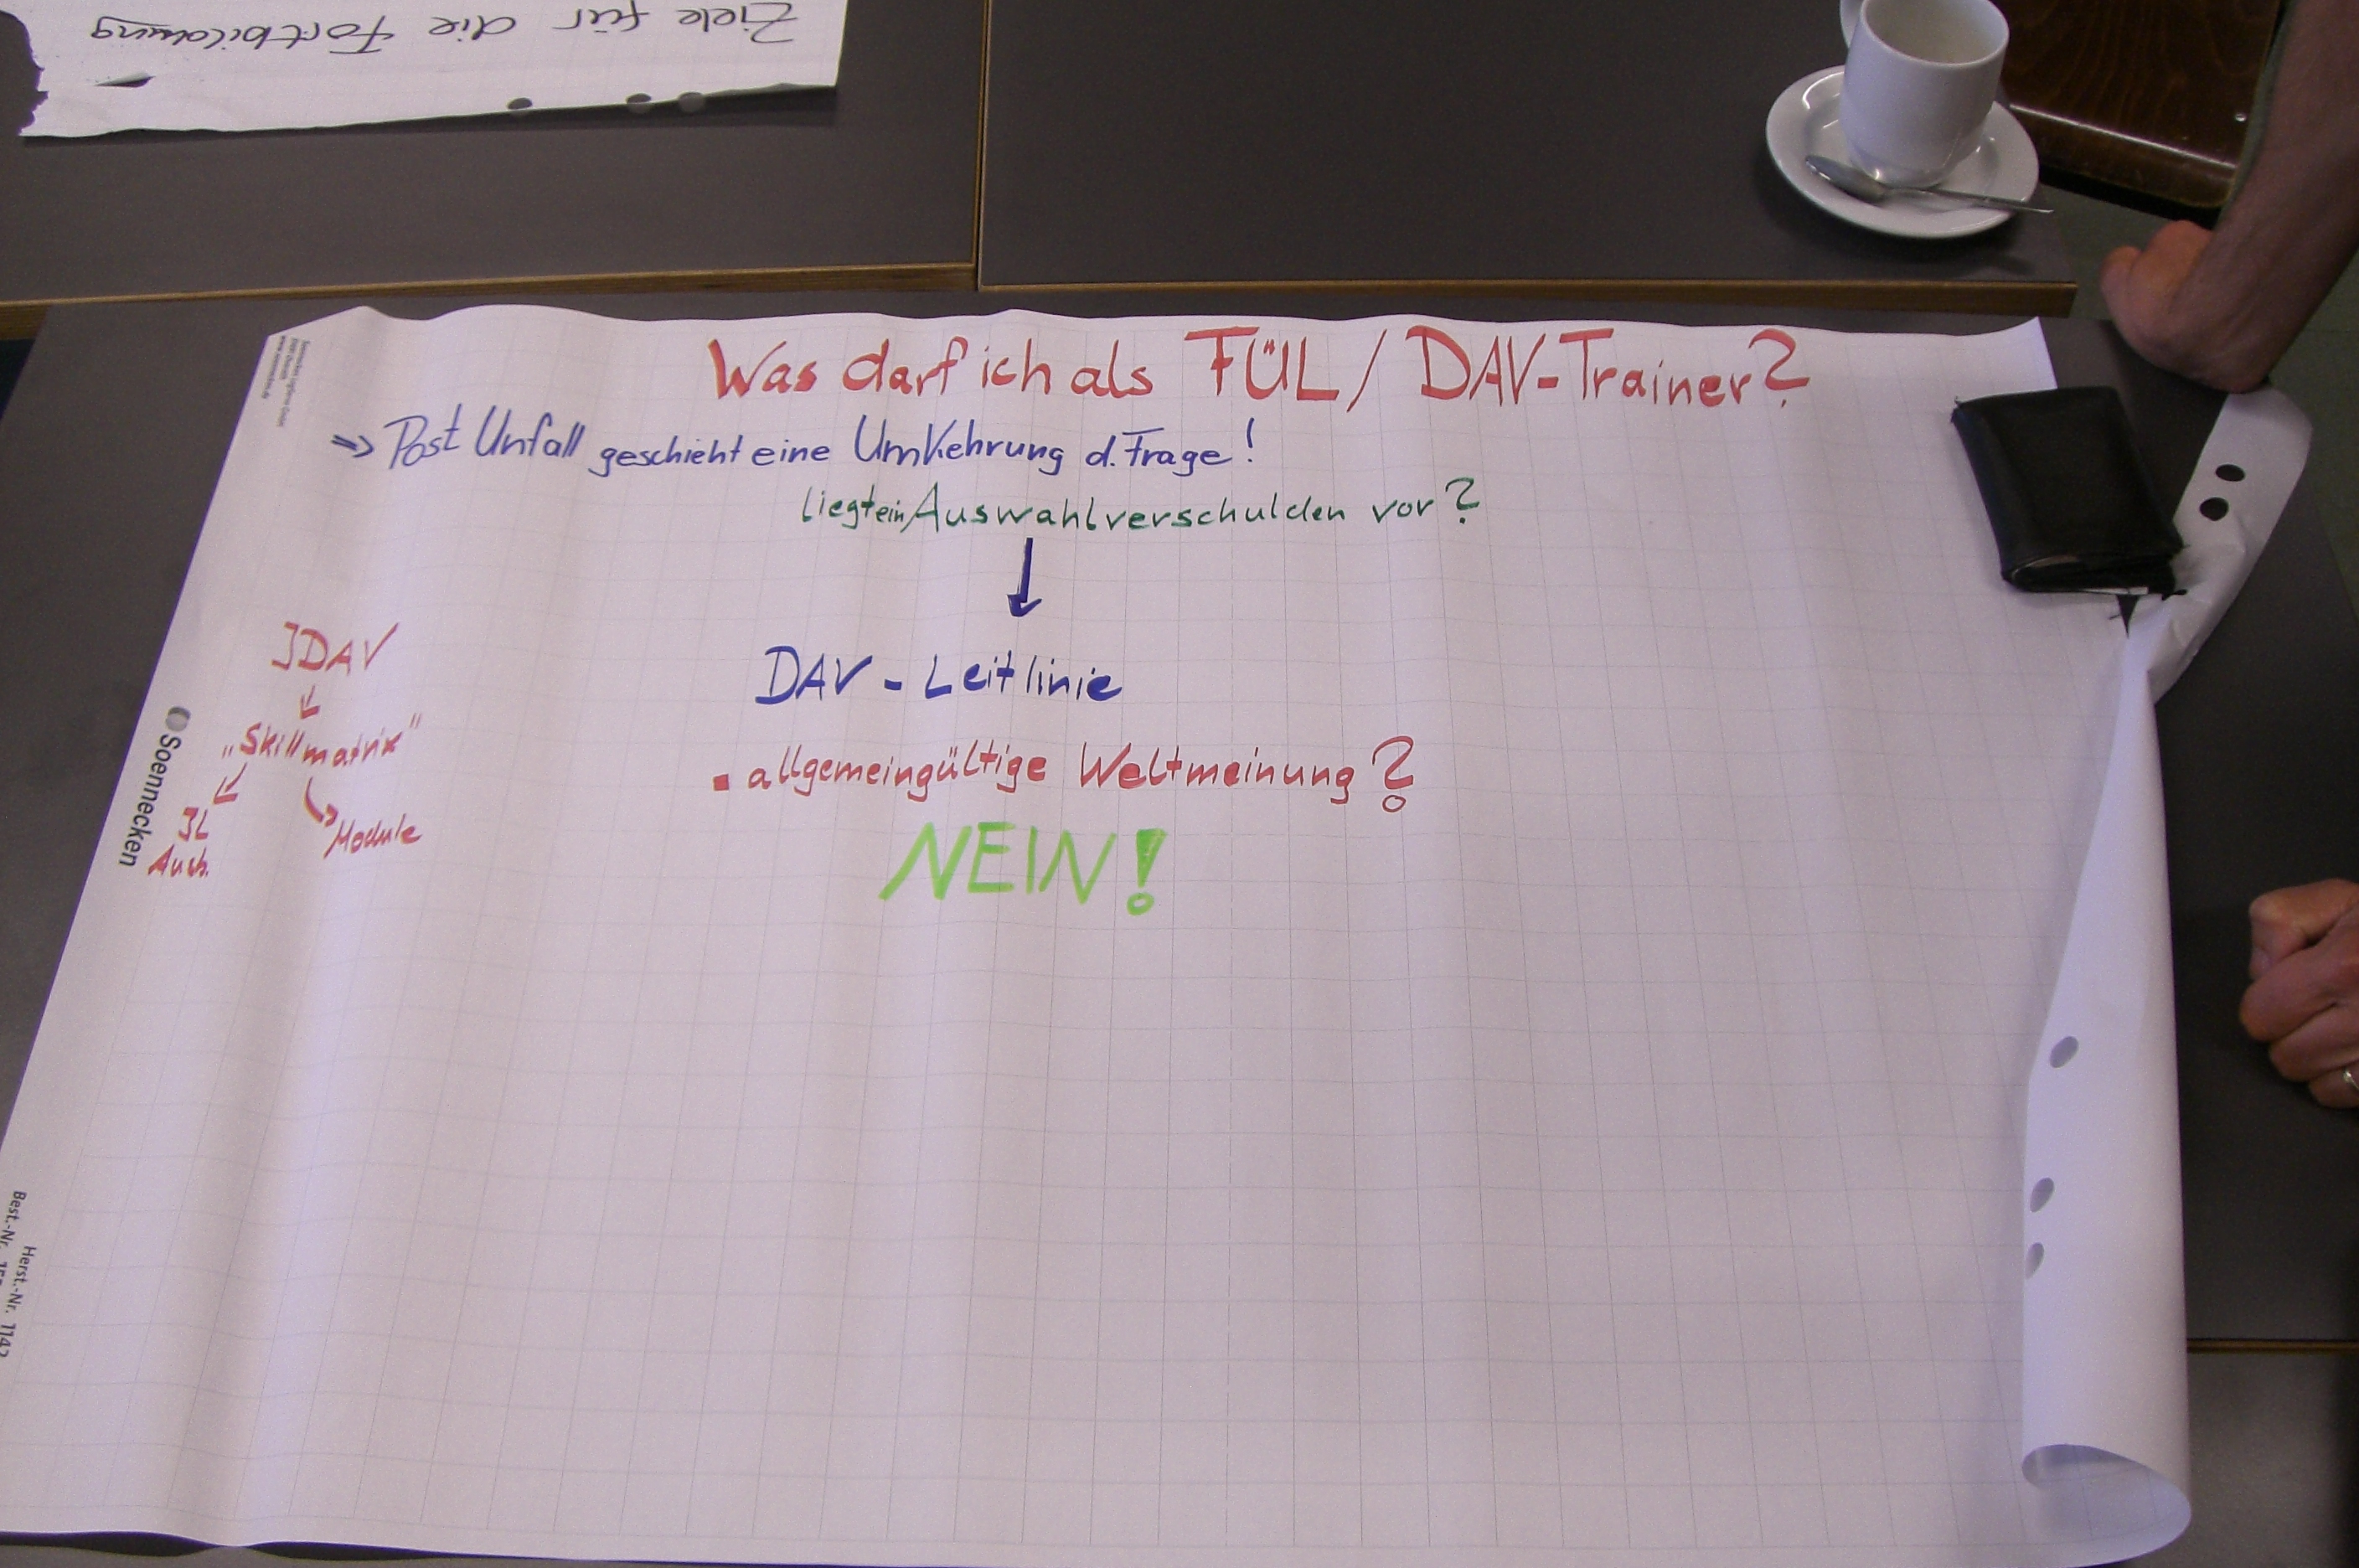 Ziele für die Fortbildung
Was darf ich als FÜL / DAV-Trainer?
=> Post Unfall geschieht eine Umkehrung d. Frage!
liegt ein Auswahlverschulden vor?
DAV - Leitlinie
▪ allgemeingültige Weltmeinung?
NEIN!
JDAV
„Skillmatrix"
JL
Ausb.
Module
Soennecken
Best.-Nr.
Herst.-Nr. 1142